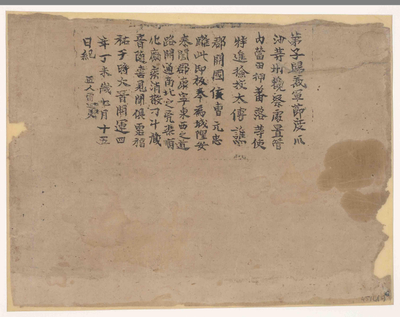 弟子歸義軍節度瓜
沙等州觀察處置管
內營田押蕃落等使
特進檢校太傅譙
郡開國侯曹元忠
雕此印板奉為城隍安
泰闔郡康寧東西之道
路開通南北之兇渠順
化癘疾消散刁斗藏
音隨喜見聞俱霑福
祐于時大晉開運四
年丁未歲七月十五
日紀 匠人雷延美